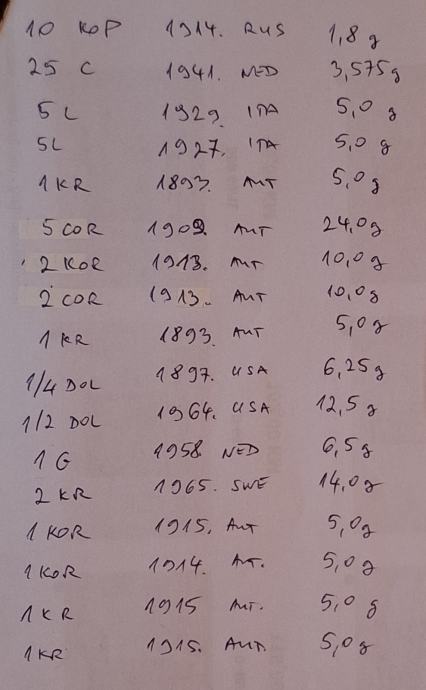 10 KOP 1914. RUS 1,8 g
25 C 1941. NED 3,575g
5 L 1929. ITA 5,0 g
5L 1927. ITA 5,0 g
1 KR 1893. AUT 5,0g
5 COR 1909 AUT 24,0g
2 KOR 1913. AUT 10,0g
2 COR 1913. AUT 10,0g
1 KR 1893. AUT 5,0g
1/4 DOL 1897. USA 6,25g
1/2 DOL 1964. USA 12,5g
1 G 1958 NED 6,5g
2 KR 1965. SWE 14,0g
1 KOR 1915. AUT 5,0g
1 KOR 1914. AUT. 5,0g
1 KR 1915 AUT. 5,0 g
1 KR 1915. AUT. 5,0g